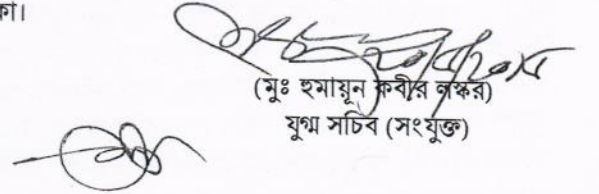 কা।
(মুঃ হুমায়ূন কবীর লস্কর)
যুগ্ম সচিব (সংযুক্ত)